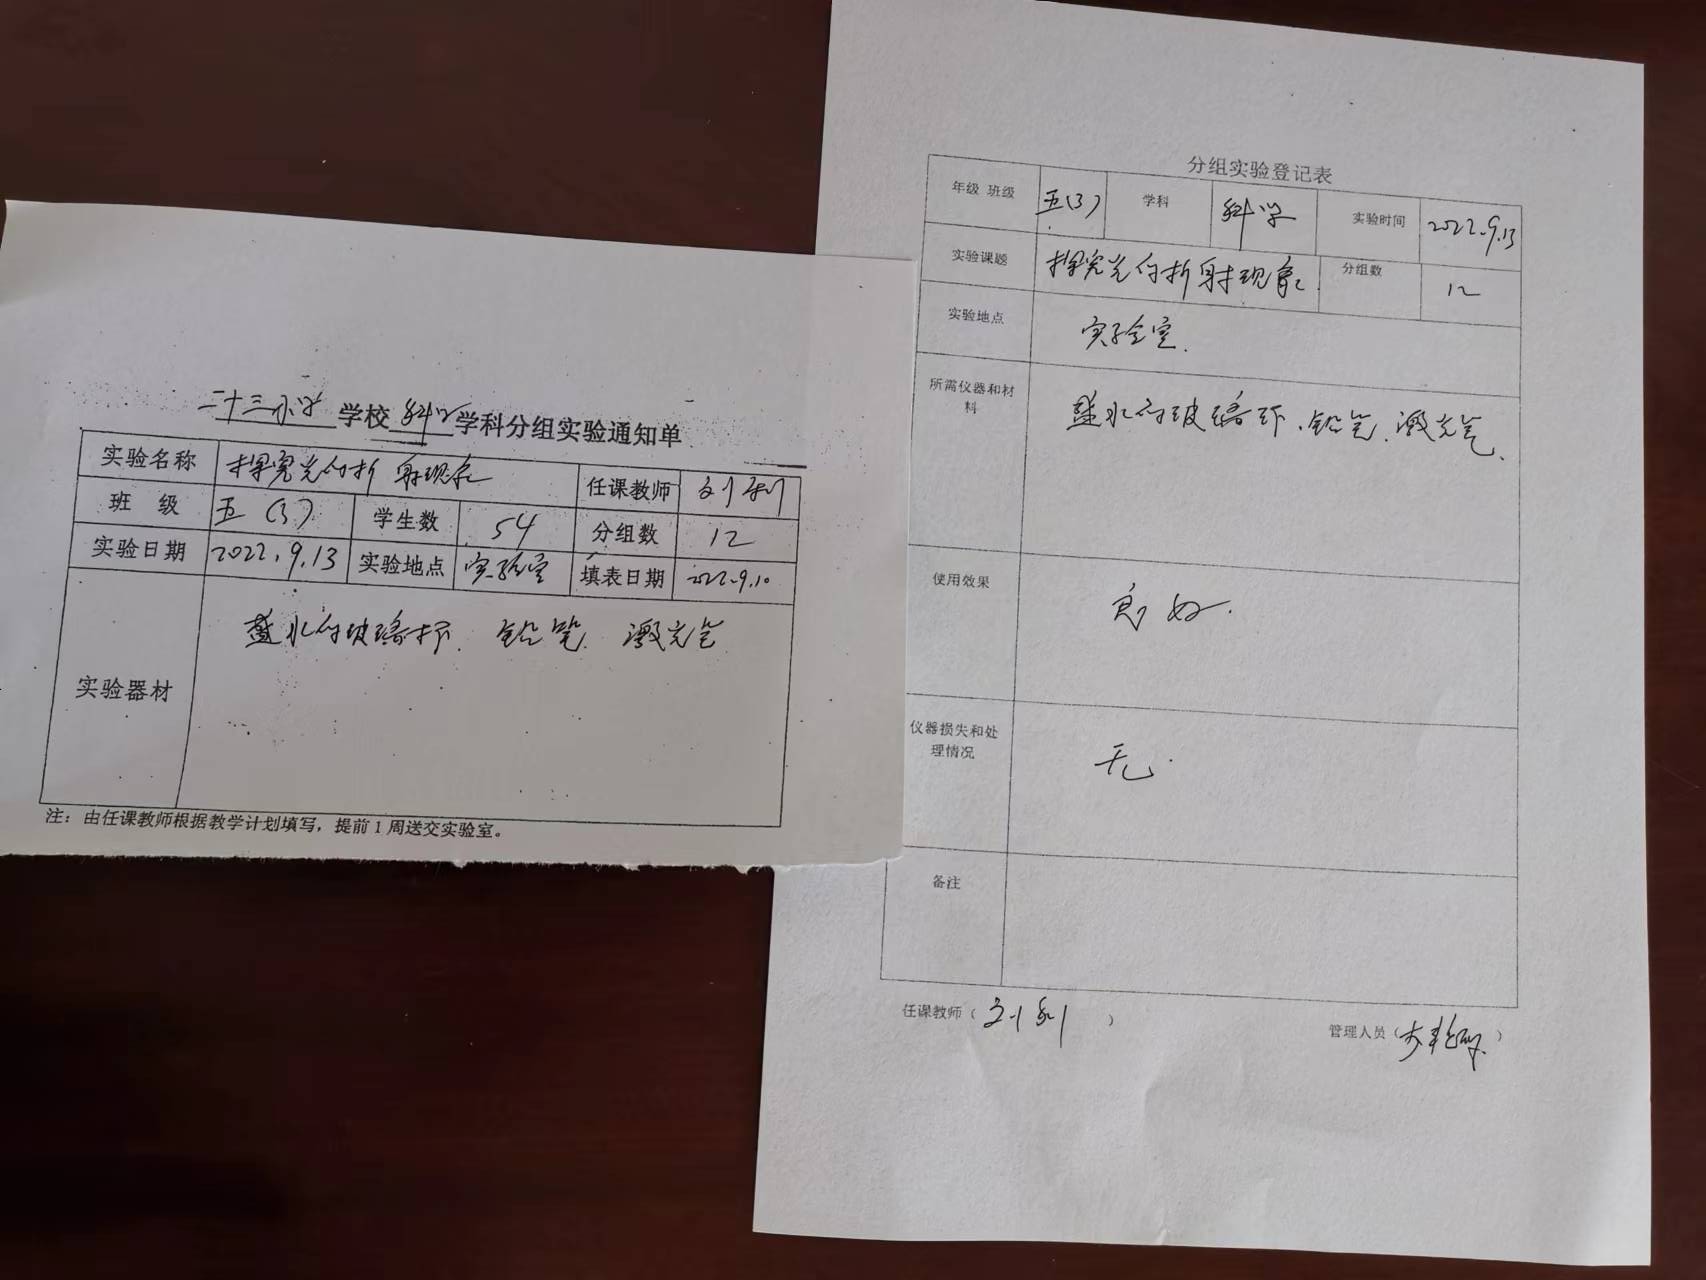 二十三小学学校科学学科分组实验通知单
实验名称 探究光的折射现象 任课教师 刘利
班 级 五(3) 学生数 54 分组数 12
实验日期 2022.9.13 实验地点 实验室 填表日期 2022.9.10
实验器材 盛水的玻璃杯、铅笔、激光笔
注：由任课教师根据教学计划填写，提前1周送交实验室。
分组实验登记表
年级 班级 五(3) 学科 科学 实验时间 2022.9.13
实验课题 探究光的折射现象 分组数 12
实验地点 实验室.
所需仪器和材
料
盛水的玻璃杯、铅笔、激光笔.
使用效果 良好.
仪器损失和处
理情况
无.
备注
任课教师（刘利） 管理人员（ ）